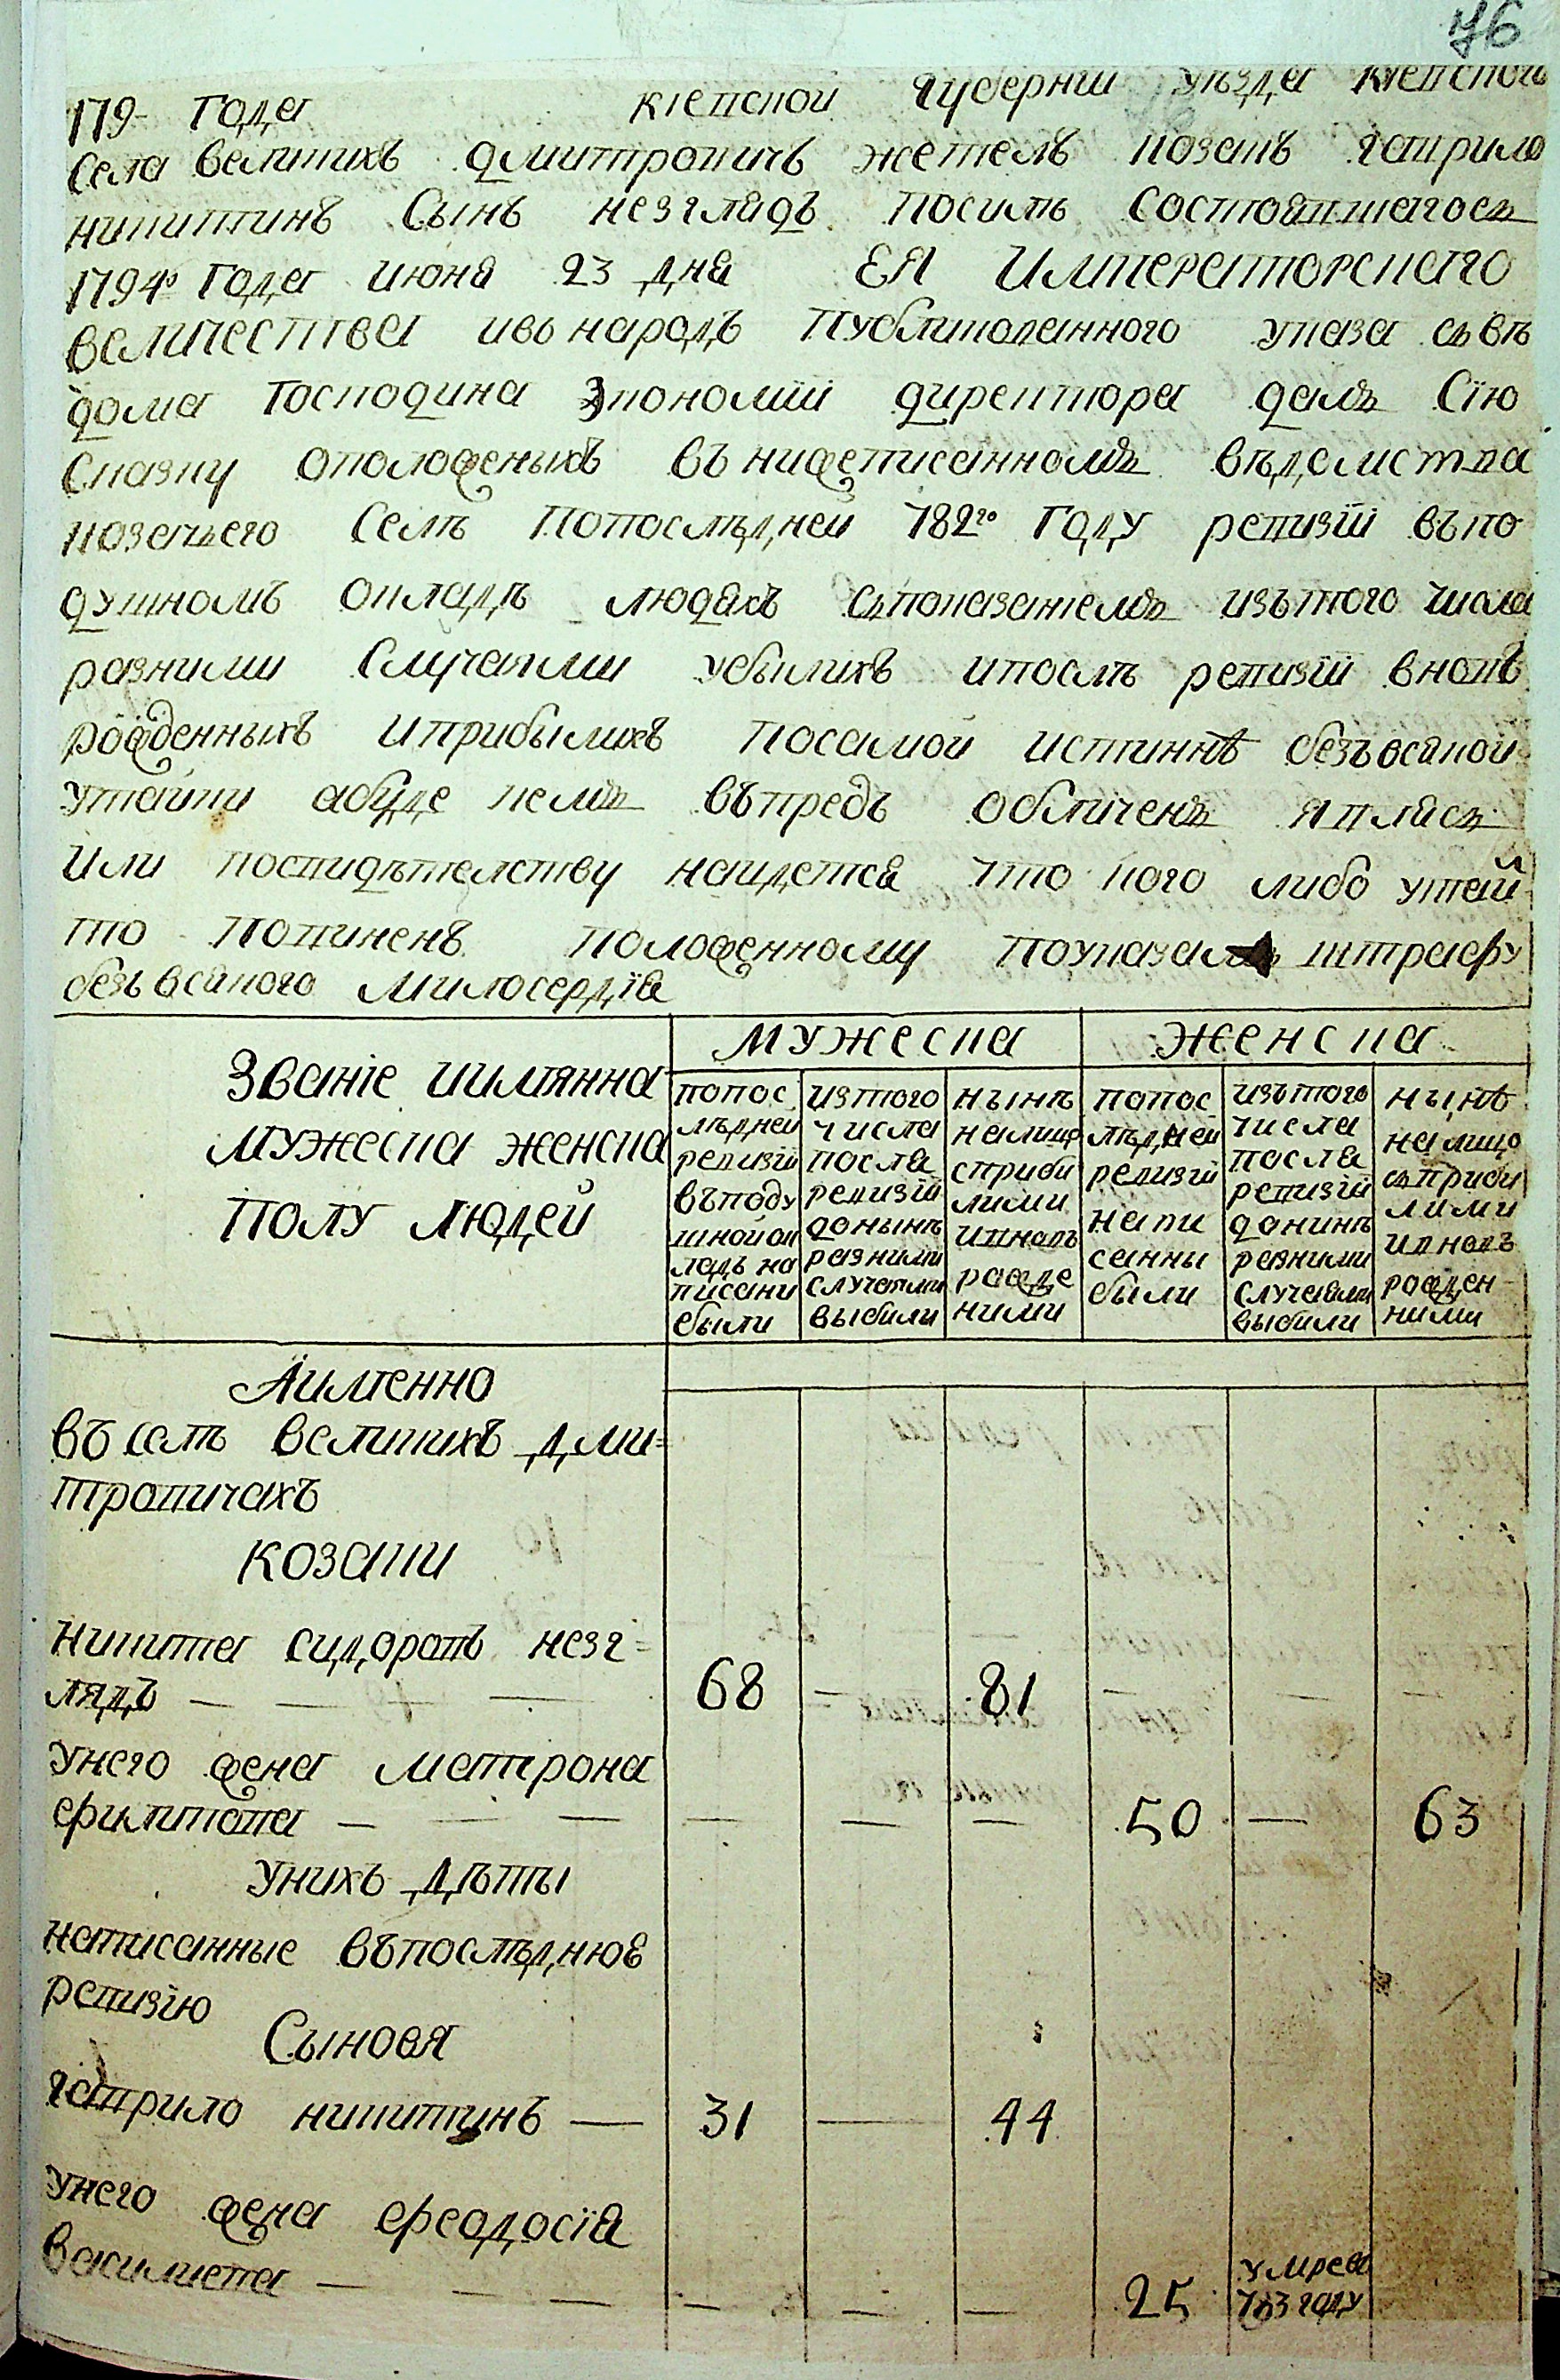 76
179- Года Кіевской Губерніи уѣзда Кіевского
Села великихъ дмитровичъ жетель козакъ гаврило
никитинъ Сынъ незглядъ посилѣ состоявшагось
1794го Года июня 23 дня ЕЯ Императорскаго
величества ивонародъ публикованного указа съ вѣ
дома Господина Экономіи директора далъ Сїю
Сказку оположеныхъ въ нижеписанномъ вѣдомства
козачьего Селѣ Попослѣдней 782го Году ревизіи въ по
душномъ окладѣ людяхъ съпоказаніемъ изътого числа
разними Случаями убылихъ ипослѣ ревизіи вновъ
рожденныхъ иприбылихъ Посамой истиннѣ безъвсякой
утайки абуде кемъ въпредь обличенъ явлюсь
Или посвидѣтелству найдется что кого либо утаилъ
то Повиненъ положенному Поуказамъ штрафу
безъ всякого милосердїя
Званіе иимянна мужеска женска полу людей
мужеска
женска
попос
лѣдней
ревизіи
въподу
шной ок
ладъ на
писани
были
изтого
числа
посля
ревизіи
донынѣ
разними
случаями
выбили
нынѣ
налицо
сприби
лими
ивновъ
рожде
ними
попос
лѣдней
ревизіи
напи
санны
были
изътого
числа
посля
ревизіи
донинѣ
разними
случаями
выбили
нынѣ
налицо
съприби
лими
ивновъ
рожден-
ними
Аименно
въ селѣ великихъ дми=
тровичахъ
козаки
Никита сидоровъ незг=
лядъ — — — 68 — 81 — — —
Унего жена матрона
филипова — — — — — — 50 — 63
Унихъ дѣти
написанные въпослѣднюю
ревизію
Сыновя
гаврило никитинъ — 31 — 44
Унего жена феодосїя
василиева — — — — — — 25 умрела
783 году